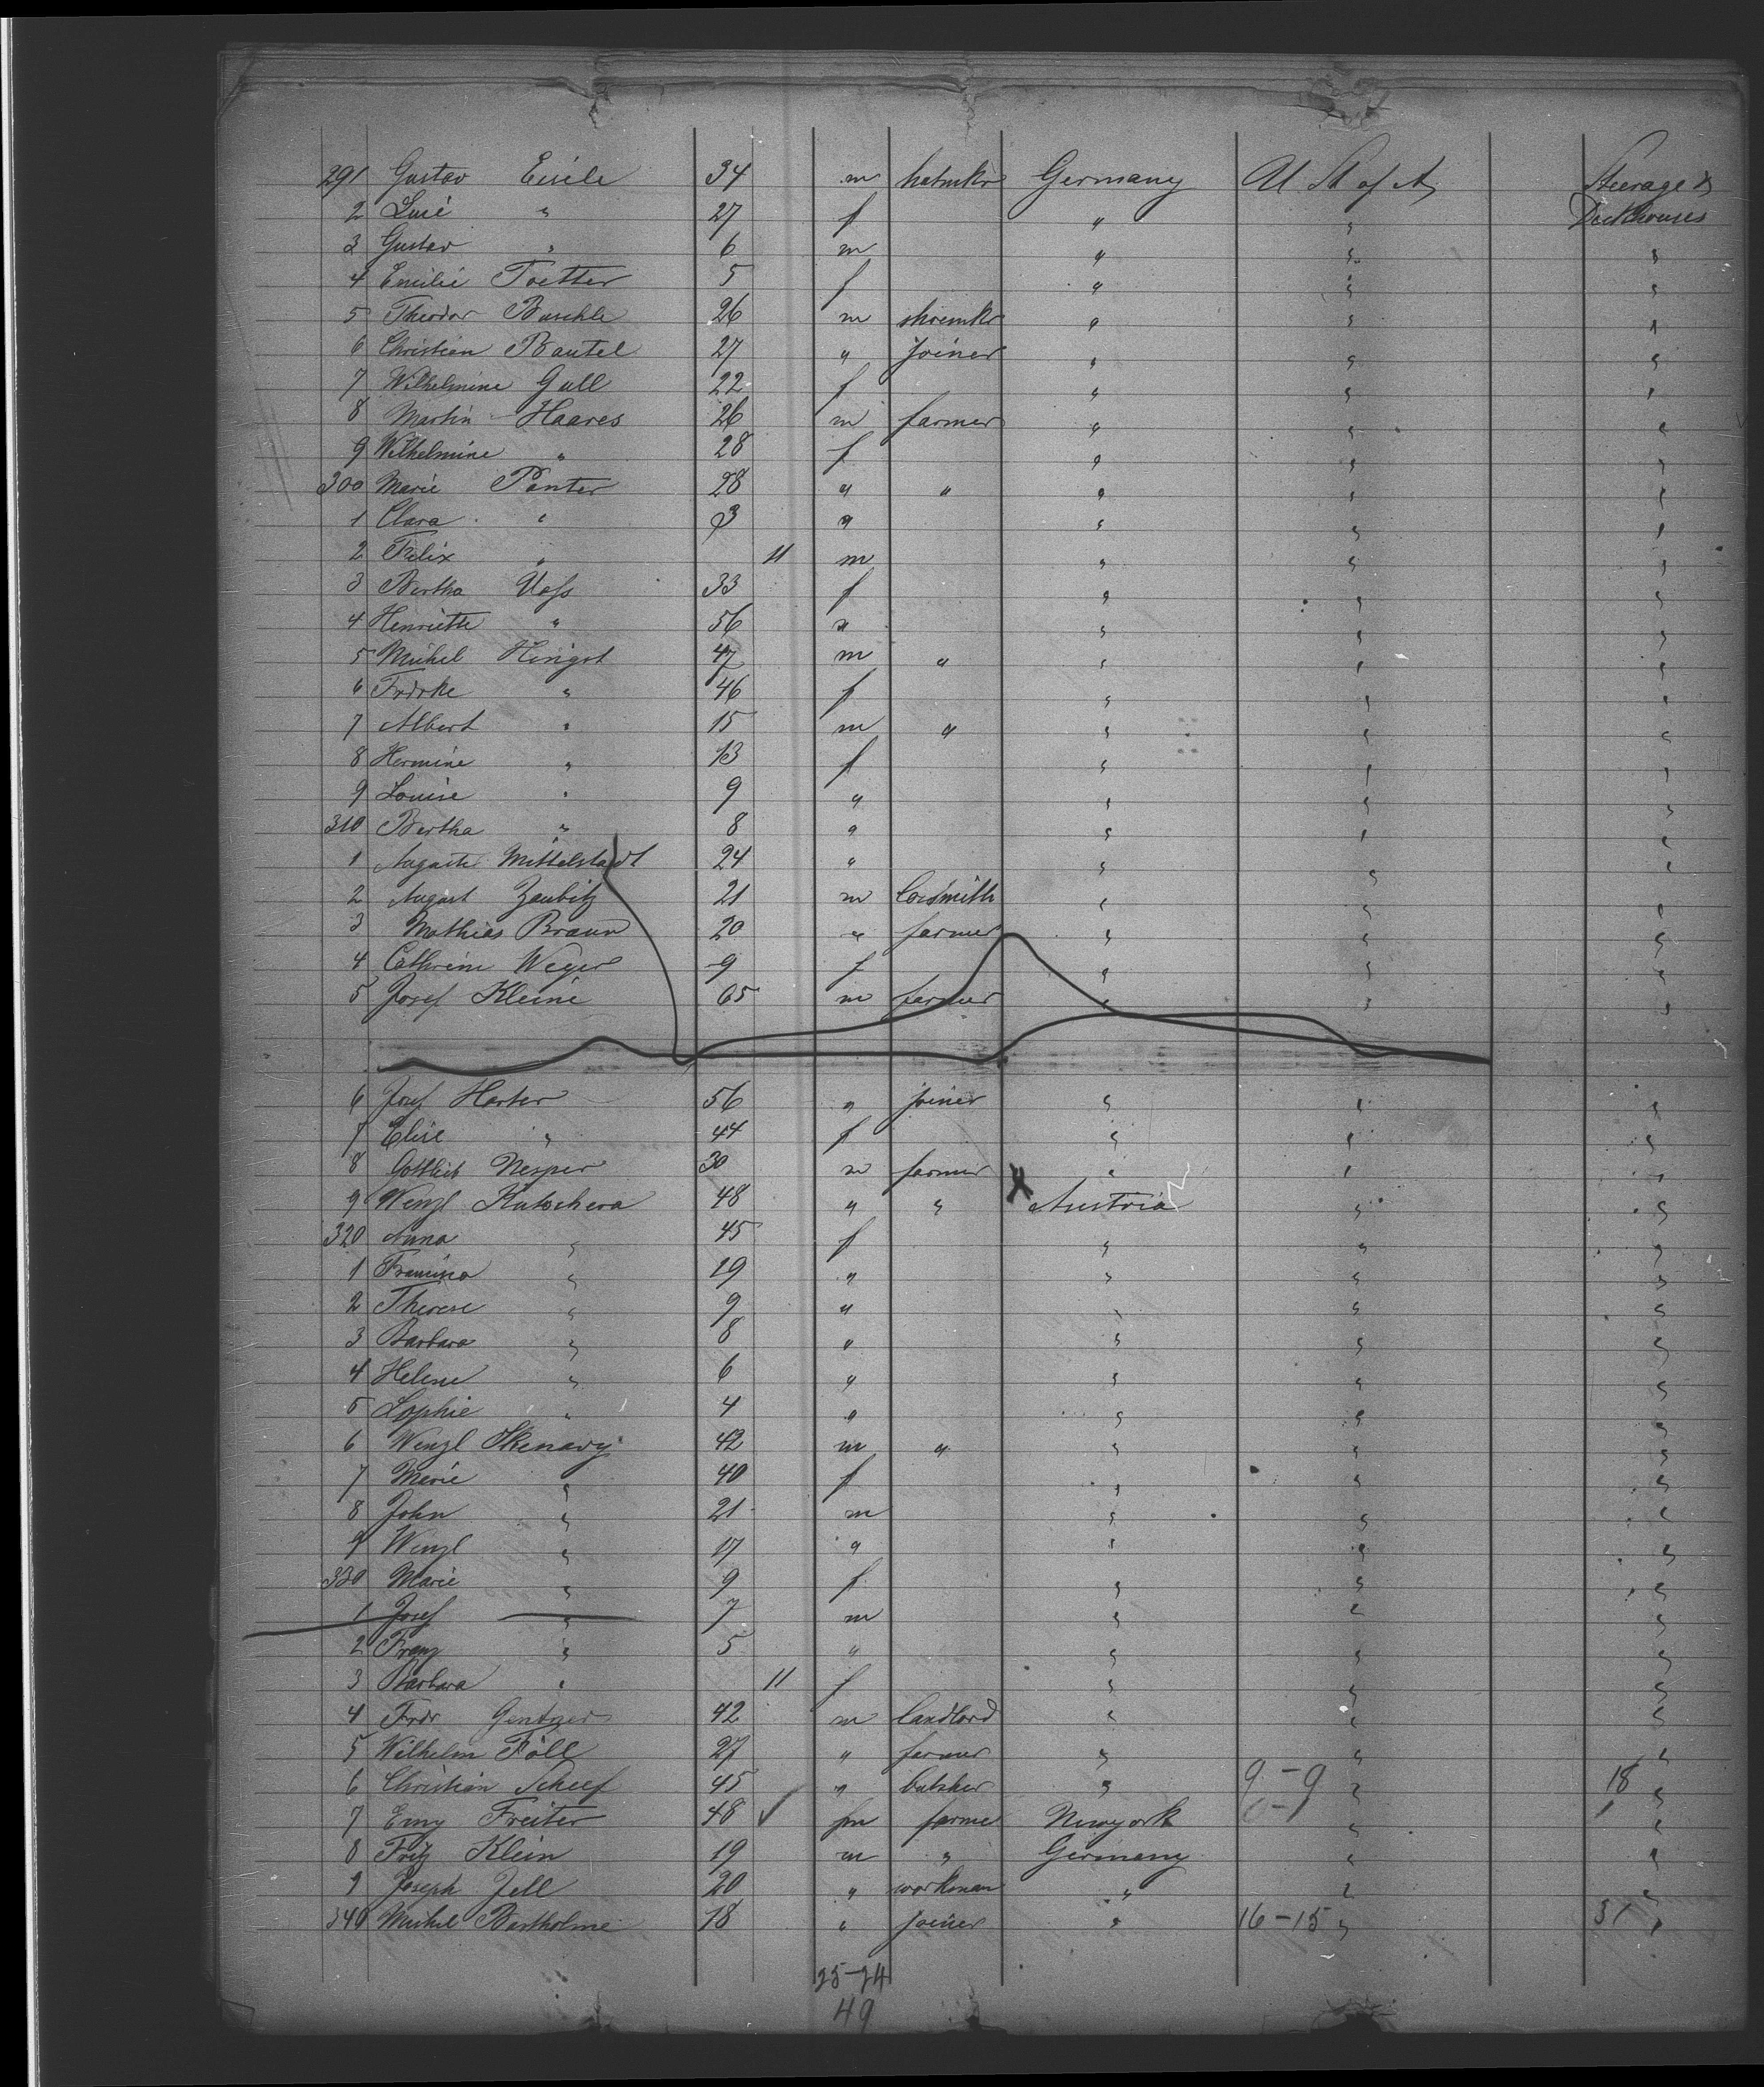 291 Gustav Eisele 34 m hatmkr Germany U St of A, Steerage &
2 Luise " 27 f " " Deckhouses
3 Gustav " 6 m " " "
4 Emilie Toetter 5 f " " "
5 Theodor Buschle 26 m shoemkr " " "
6 Christian Bautel 27 " joiner " " "
7 Wilhelmine Gall 22 f " " "
8 Martin Haares 26 m farmer " " "
9 Wilhelmine " 28 f " " "
300 Marie Panter 28 " " " " "
1 Clara " 3 " " " "
2 Felix " 11 m " " "
3 Bertha Uass 33 f " " "
4 Henriette " 56 " " " "
5 Michel Hingst 47 m " " " "
6 Fridrke " 46 f " " "
7 Albert " 15 m " " " "
8 Hermine " 13 f " " "
9 Louise " 9 " " " "
310 Bertha " 8 " " " "
1 Auguste Mittelstadt 24 " " " "
2 August Zaubitz 21 m locksmith " " "
3 Mathias Braun 20 " farmer " " "
4 Cathrine Weyer 9 f " " "
5 Josef Kleine 65 m farmer " " "
6 Josef Harter 56 " joiner " " "
7 Elise " 44 f " " "
8 Gottlieb Nesper 30 m farmer " " "
9 Wenzl Kutschera 48 " " X Austria " "
320 Anna " 45 f " " "
1 Franziska " 19 " " " "
2 Therese " 9 " " " "
3 Barbara " 8 " " " "
4 Helene " 6 " " " "
5 Sophie " 4 " " " "
6 Wenzl Skenavy 42 m " " " "
7 Marie " 40 f " " "
8 John " 21 m " " "
9 Wenzl " 17 " " " "
330 Marie " 9 f " " "
1 Josef " 7 m " " "
2 Franz " 5 " " " "
3 Barbara " 11 f " " "
4 Frdr Gentzer 42 m landlord " " "
5 Wilhelm Föll 27 " farmer " " "
6 Christian Scheef 45 " butcher " 9-9 " 18 "
7 Emy Freiter 48 ✓ fm farmer Newyork 0-1 " 1 "
8 Fritz Klein 19 m " Germany " "
9 Joseph Jell 20 " workman " " "
340 Michel Bartholme 18 " joiner " 16-15 " 31 "
25-24
49